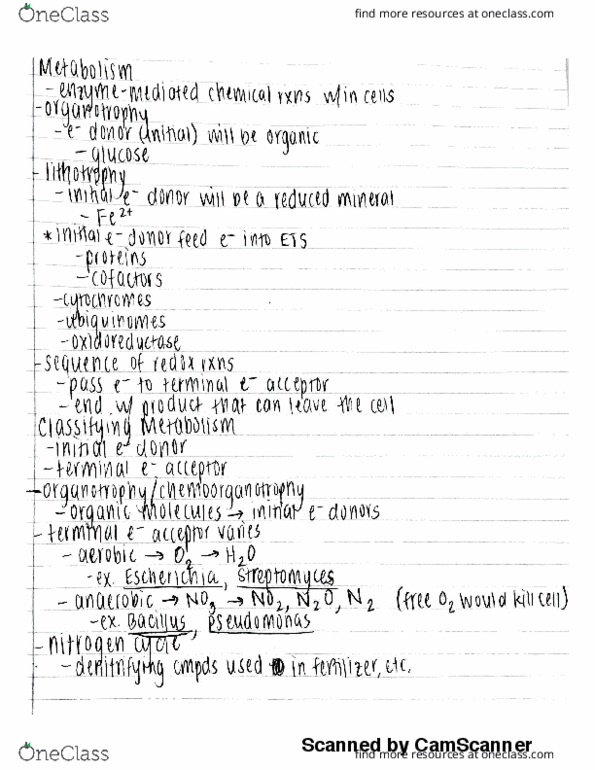 OneClass
find more resources at oneclass.com
Metabolism
- enzyme-mediated chemical rxns w/in cells
- organotrophy
- e⁻ donor (initial) will be organic
- glucose
- lithotrophy
- initial e⁻ donor will be a reduced mineral
- Fe²⁺
* initial e⁻ donor feed e⁻ into ETS
- proteins
- cofactors
- cytochromes
- ubiquinomes
- oxidoreductase
- sequence of redox rxns
- pass e⁻ to terminal e⁻ acceptor
- end w/ product that can leave the cell
Classifying Metabolism
- initial e⁻ donor
- terminal e⁻ acceptor
- organotrophy/chemoorganotrophy
- organic molecules → initial e⁻ donors
- terminal e⁻ acceptor varies
- aerobic → O₂ → H₂O
- ex. Escherichia, Streptomyces
- anaerobic → NO₃ → NO₂, N₂O, N₂ (free O₂ would kill cell)
- ex. Bacillus, pseudomonas
- nitrogen cycle
- denitrifying cmpds used in fertilizer, etc.
Scanned by CamScanner
OneClass
find more resources at oneclass.com